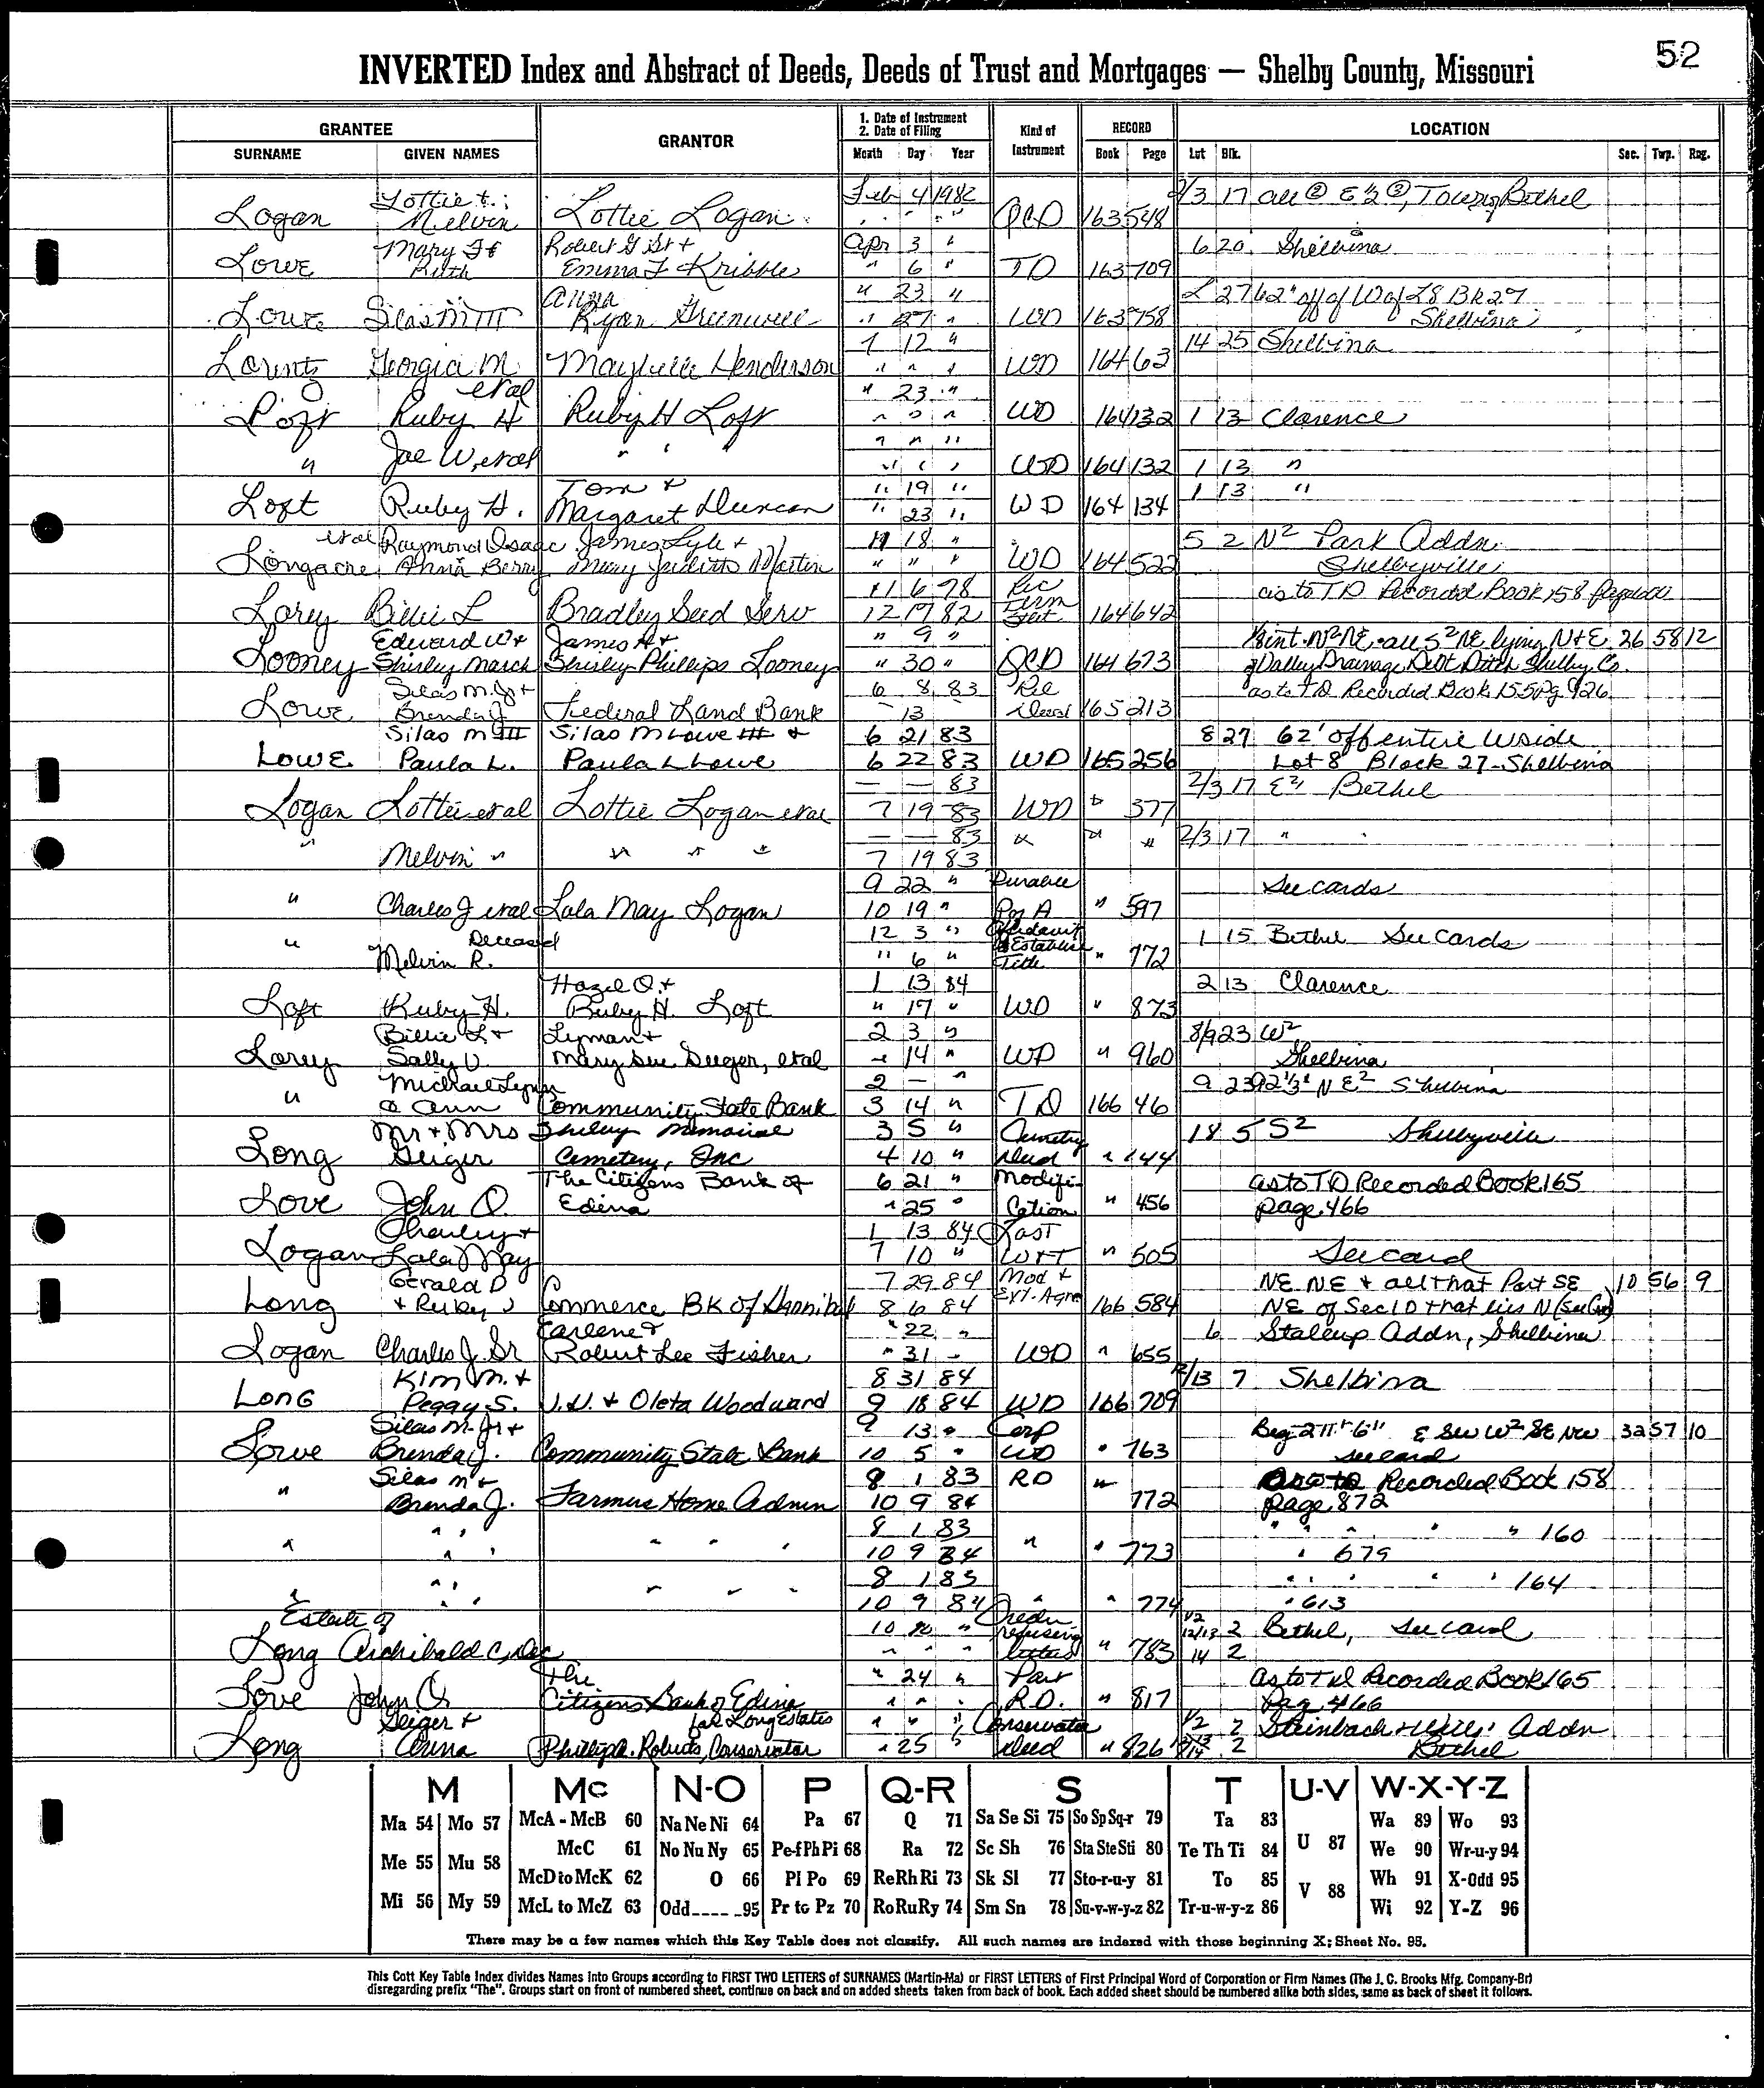 52
INVERTED Index and Abstract of Deeds, Deeds of Trust and Mortgages — Shelby County, Missouri
GRANTEE GRANTOR 1. Date of Instrument 2. Date of Filing Kind of Instrument RECORD LOCATION
SURNAME GIVEN NAMES Month Day Year Book Page Lot Blk. Sec. Twp. Rng.
Lottie & Feb 4 1982 2/3 17 all E 1/2 Bethel
Logan Melvin Lottie Logan " " " QCD 163 548
Mary F & Robert G + Apr 3 " 6 20 Shelbina
Lowe Ruth Emma F Kribbs " 6 " TD 163 709
Anna " 23 " 27 62' off of W of L8 Bk 27
Lowe Silas M III Ryan Greenwell " 27 " WD 163 758 Shelbina
7 12 " 14 25 Shelbina
Lorentz Georgia M Maybelle Henderson " " " WD 164 63
et al " 23 "
Loft Ruby H Ruby H Loft " " " WD 164 132 1 13 Clarence
" " "
" Joe W, et al " " " " " WD 164 132 1 13 "
Tom & " 19 " 1 13 "
Loft Ruby H. Margaret Duncan " 23 " WD 164 134
et al Raymond Isaac James Lyle + 11 18 " 5 2 N2 Park Addn.
Longacre Anna Berry Mary Judith Martin " " " WD 164 522 Shelbyville
11 6 78 as to TD Recorded Book 158
Lorey Billie L Bradley Seed Serv 12 17 82 164 642
Edward W + James H + " 9 " N2 NE all S2 NE lying N + E 26 58 12
Looney Shirley March Shirley Phillips Looney " 30 " QCD 164 673 Drainage Dist Ditch Shelby Co.
Silas M. Jr + 6 8 83 Rel as to TD Recorded Book 155 Pg 926
Lowe Brenda J Federal Land Bank 13 Deed 165 213
Silas M III Silas M Lowe III + 6 21 83 8 27 62' off entire W side
Lowe Paula L. Paula L Lowe 6 22 83 WD 165 256 Lot 8 Block 27 - Shelbina
— — 83 2/3 17 E2 Bethel
Logan Lottie et al Lottie Logan et al 7 19 83 WD " 377
— — 83 " " " 2/3 17 "
" Melvin " " " " 7 19 83
9 22 " Durable See cards
" Charles J et al Lala May Logan 10 19 " " 597
Deceased 12 3 " Affidavit 1 15 Bethel See Cards
" Melvin R. " 6 " to Establish Title " 772
Hazel O. + 1 13 84 2 13 Clarence
Loft Ruby H. Ruby H. Loft " 17 " WD " 873
Billie L + Lyman + 2 3 " 8/9 23 W2
Lorey Sally V. Mary Sue Seeger, et al " 14 " WD " 960 Shelbina
Michael Lynn 2 — " 9 23 Shelbina
" Ann Community State Bank 3 14 " TD 166 46
Mr + Mrs Shelby Memorial 3 5 " Cemetry 18 5 S2 Shelbyville
Long Geiger Cemetery, Inc 4 10 " Deed " 144
The Citizens Bank of 6 21 " Modifi- as to TD Recorded Book 165
Love John O. Edina " 25 " cation " 456 page 466
Charley + 1 13 84 Last
Logan Lala May 7 10 " W + T " 505 See card
Gerald D 7 29 84 Mod + NE NE + all that Part SE 10 56 9
Long + Ruby J Commerce BK of Hannibal 8 6 84 Ext. Agre 166 584 NE of Sec 10 that lies N (See Card)
Earlene & " 22 " 6 Stallup Addn, Shelbina
Logan Charles J. Sr Robert Lee Fisher " 31 " WD " 655
Kim M. + 8 31 84 12/13 7 Shelbina
Long Peggy S. J.V. + Oleta Woodward 9 18 84 WD 166 709
Silas M. Jr + 9 13 " Corp Beg 211' 6" E W2 SE NW 32 57 10
Lowe Brenda J. Community State Bank 10 5 " WD " 763 see card
Silas M + 8 1 83 RD " Recorded Book 158
" Brenda J. Farmers Home Admin 10 9 84 772 page 872
8 1 83 " " " " " 160
" " " " " " 10 9 84 " " 773 " 679
8 1 83 " " " " " 164
" " " " " " 10 9 84 " " 774 " 613
Estate of 10 " refusing 1/2 12/13 2 Bethel, see card
Long Archibald C, Dec " " " letters " 783 14 2
The " 24 " Part as to TD Recorded Book 165
Love John O. Citizens Bank of Edina " " " R.D. " 817 Pg. 466
Geiger + for Long Estates " " " Conservator 1/2 2 Steinbach + Addn
Long Anna Phillip A. Roberts, Conservator " 25 " Deed " 826 2 Bethel
M Mc N-O P Q-R S T U-V W-X-Y-Z
Ma 54 Mo 57 McA - McB 60 Na Ne Ni 64 Pa 67 Q 71 Sa Se Si 75 So Sp Sq-r 79 Ta 83 U 87 Wa 89 Wo 93
Me 55 Mu 58 McC 61 No Nu Ny 65 Pe-f Ph Pi 68 Ra 72 Sc Sh 76 Sta Ste Sti 80 Te Th Ti 84 We 90 Wr-u-y 94
McD to McK 62 O 66 Pl Po 69 Re Rh Ri 73 Sk Sl 77 Sto-r-u-y 81 To 85 V 88 Wh 91 X-Odd 95
Mi 56 My 59 McL to McZ 63 Odd---- 95 Pr to Pz 70 Ro Ru Ry 74 Sm Sn 78 Su-v-w-y-z 82 Tr-u-w-y-z 86 Wi 92 Y-Z 96
There may be a few names which this Key Table does not classify. All such names are indexed with those beginning X; Sheet No. 95.
This Cott Key Table Index divides Names into Groups according to FIRST TWO LETTERS of SURNAMES (Martin-Ma) or FIRST LETTERS of First Principal Word of Corporation or Firm Names (The J. C. Brooks Mfg. Company-Br)
disregarding prefix "The". Groups start on front of numbered sheet, continue on back and on added sheets taken from back of book. Each added sheet should be numbered alike both sides, same as back of sheet it follows.